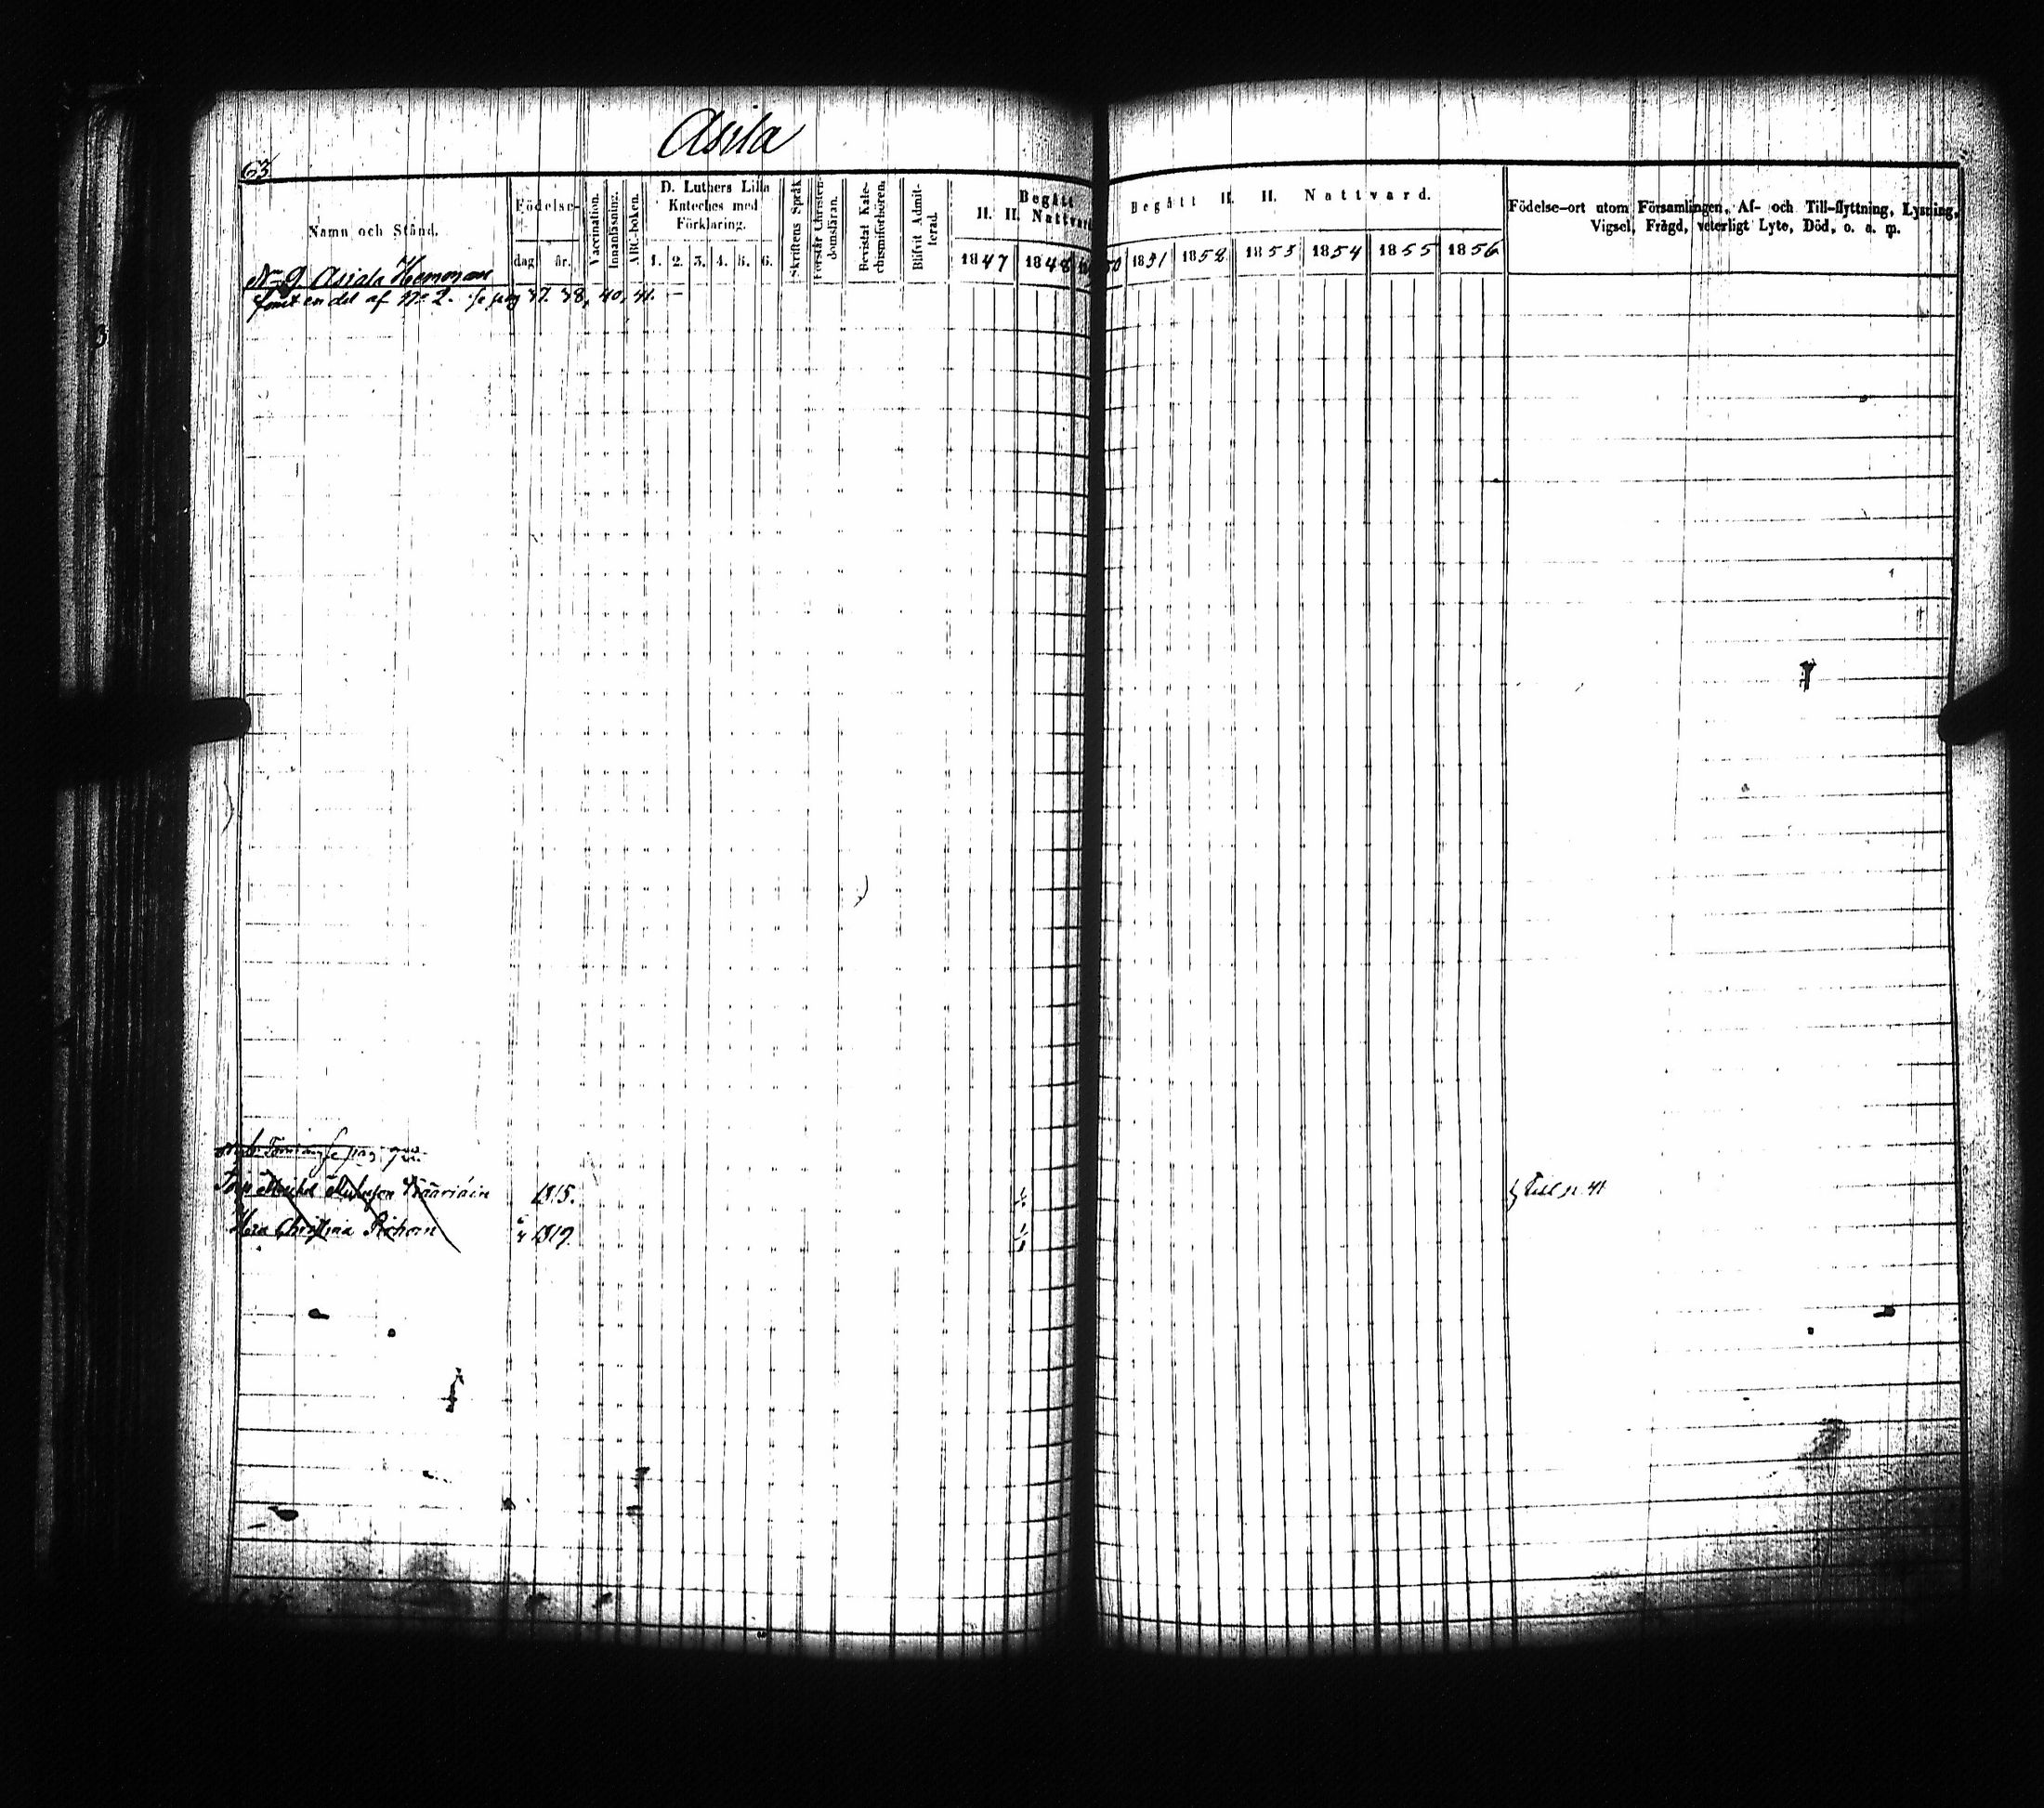 Asila
63.
Namn och Stånd.
Födelse-
dag
år.
Vaccination.
Innanläsning.
ABC-boken.
D. Luthers Lilla
Kateches med
Förklaring.
1. 2. 3. 4. 5. 6.
Skriftens Språk
Förstår Christen-
domsläran.
Bevistat Kate-
chismiförhören.
Blifvit Admit-
terad.
Begått
H. H. Nattvard
1847 1848
Begått H. H. Nattvard.
50 1851 1852 1853 1854 1855 1856
Födelse-ort utom Församlingen, Af- och Till-flyttning, Lysning,
Vigsel, Frägd, veterligt Lyte, Död, o. a. m.
No 9 Asiala Hemman
samt en del af No 2. se pag 37. 38, 40, 41. –
se pag
1815.
Till p. 41
Christina
1819.